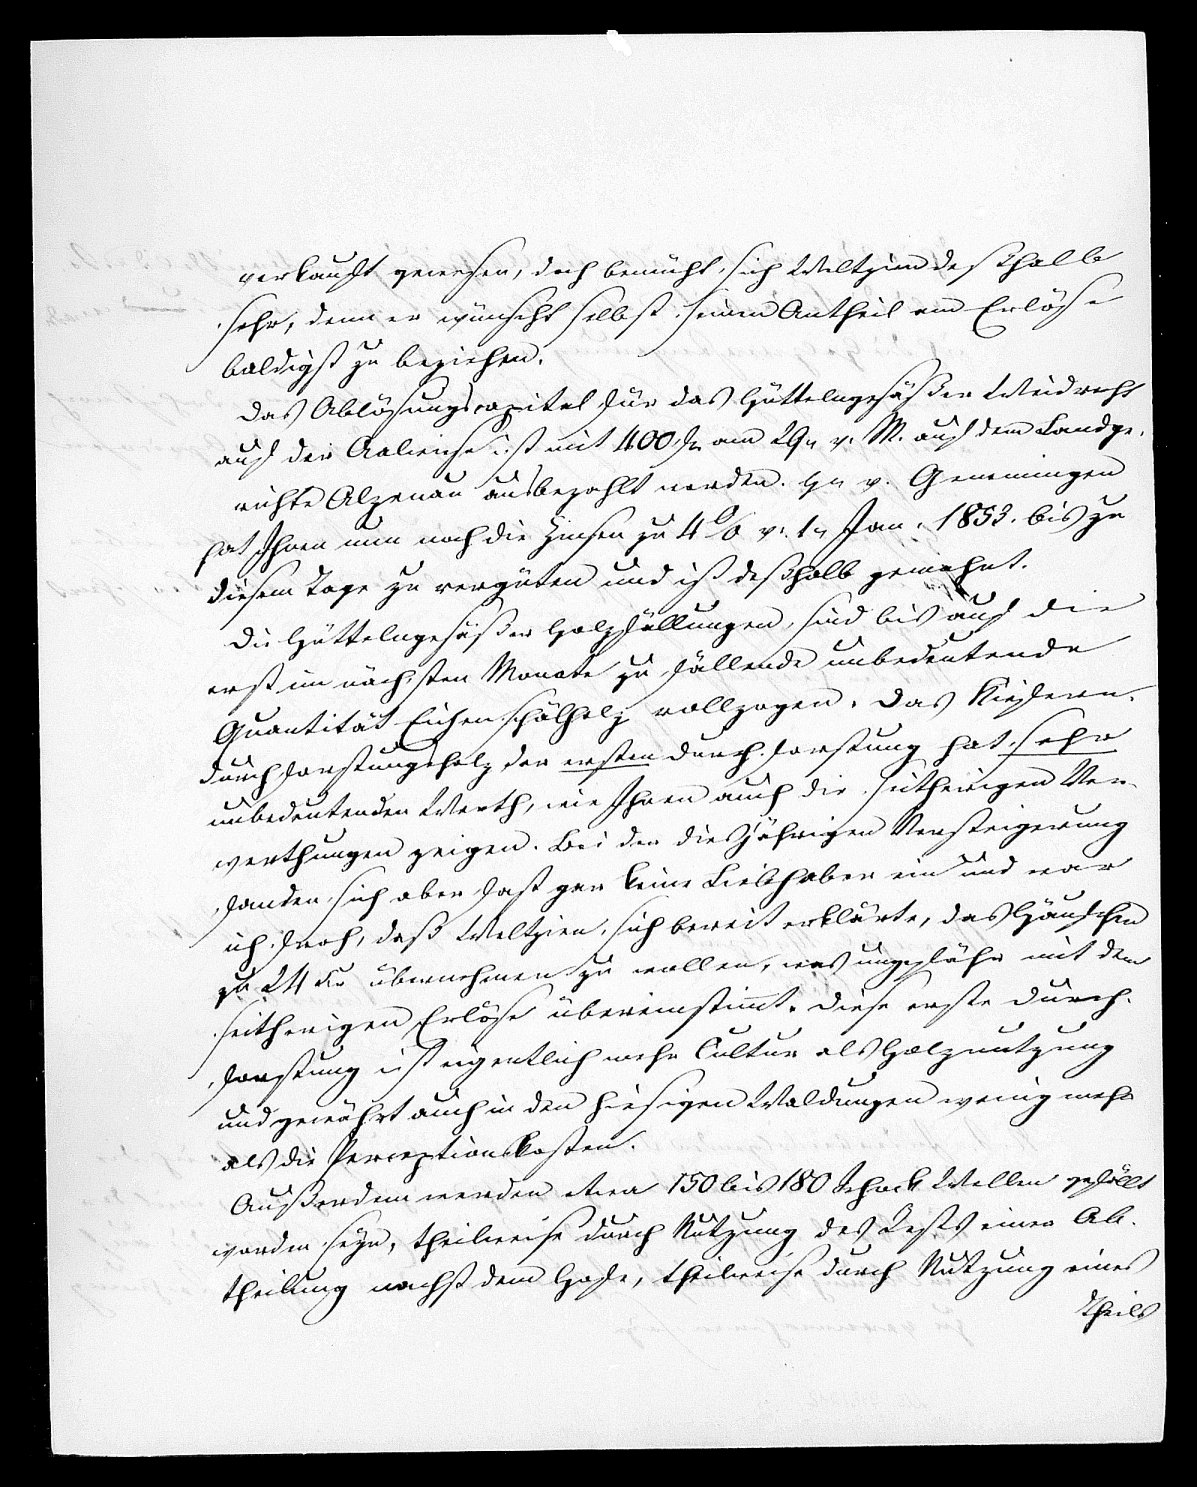 verkauft gewesen, doch bemüht sich Weltzien deßhalb
sehr, denn er wünscht selbst seinen Antheil am Erlöse
baldigst zu beziehen.
Das Ablösungscapital für das Hüttelngesäßer Weidrecht
auf der ist mit 400 fl. am 29n v. M. auf dem Landge-
richte Alzenau ausbezahlt worden. Hr v. Gemmingen
hat Ihnen nun noch die Zinsen zu 4% v. 1n Jan. 1853. bis zu
diesem Tage zu vergüten und ist deßhalb gemahnt.
Die Hüttelngesäßer Holzfällungen sind bis auf die
erst im nächsten Monate zu fällende unbedeutende
Quantität Eichenschälholz vollzogen. Das Kiefern-
durchforstungsholz der ersten Durchforstung hat sehr
unbedeutenden Werth, wie Ihnen auch die seitherigen Ver-
werthungen zeigen. Bei der diesjährigen Versteigerung
fanden sich aber fast gar keine Liebhaber ein und war
ich froh, daß Weltzien sich bereit erklärte, das Häufchen
zu 24 Kr übernehmen zu wollen, was ungefähr mit dem
seitherigen Erlöse übereinstimt. Diese erste Durch-
forstung ist eigentlich mehr Cultur als Holznutzung
und gewährt auch in den hiesigen Waldungen wenig mehr
als die Perceptionskosten.
Außerdem werden etwa 150 bis 180 Schock Wellen gefällt
worden seyn, theilweise durch Nutzung des Rests einer Ab-
theilung nächst dem Hofe, theilweise durch Nutzung eines
Theils